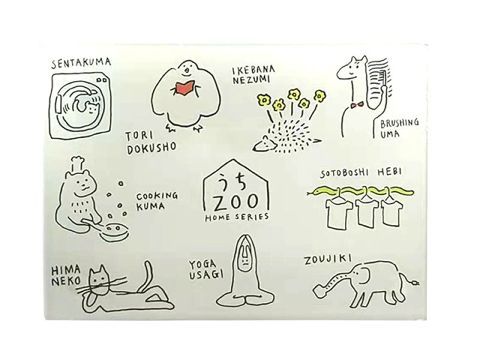 SENTAKUMA
TORI
DOKUSHO
IKEBANA
NEZUMI
BRUSHING
UMA
COOKING
KUMA
うち
ZOO
HOME SERIES
SOTOBOSHI HEBI
HIMA
NEKO
YOGA
USAGI
ZOUJIKI